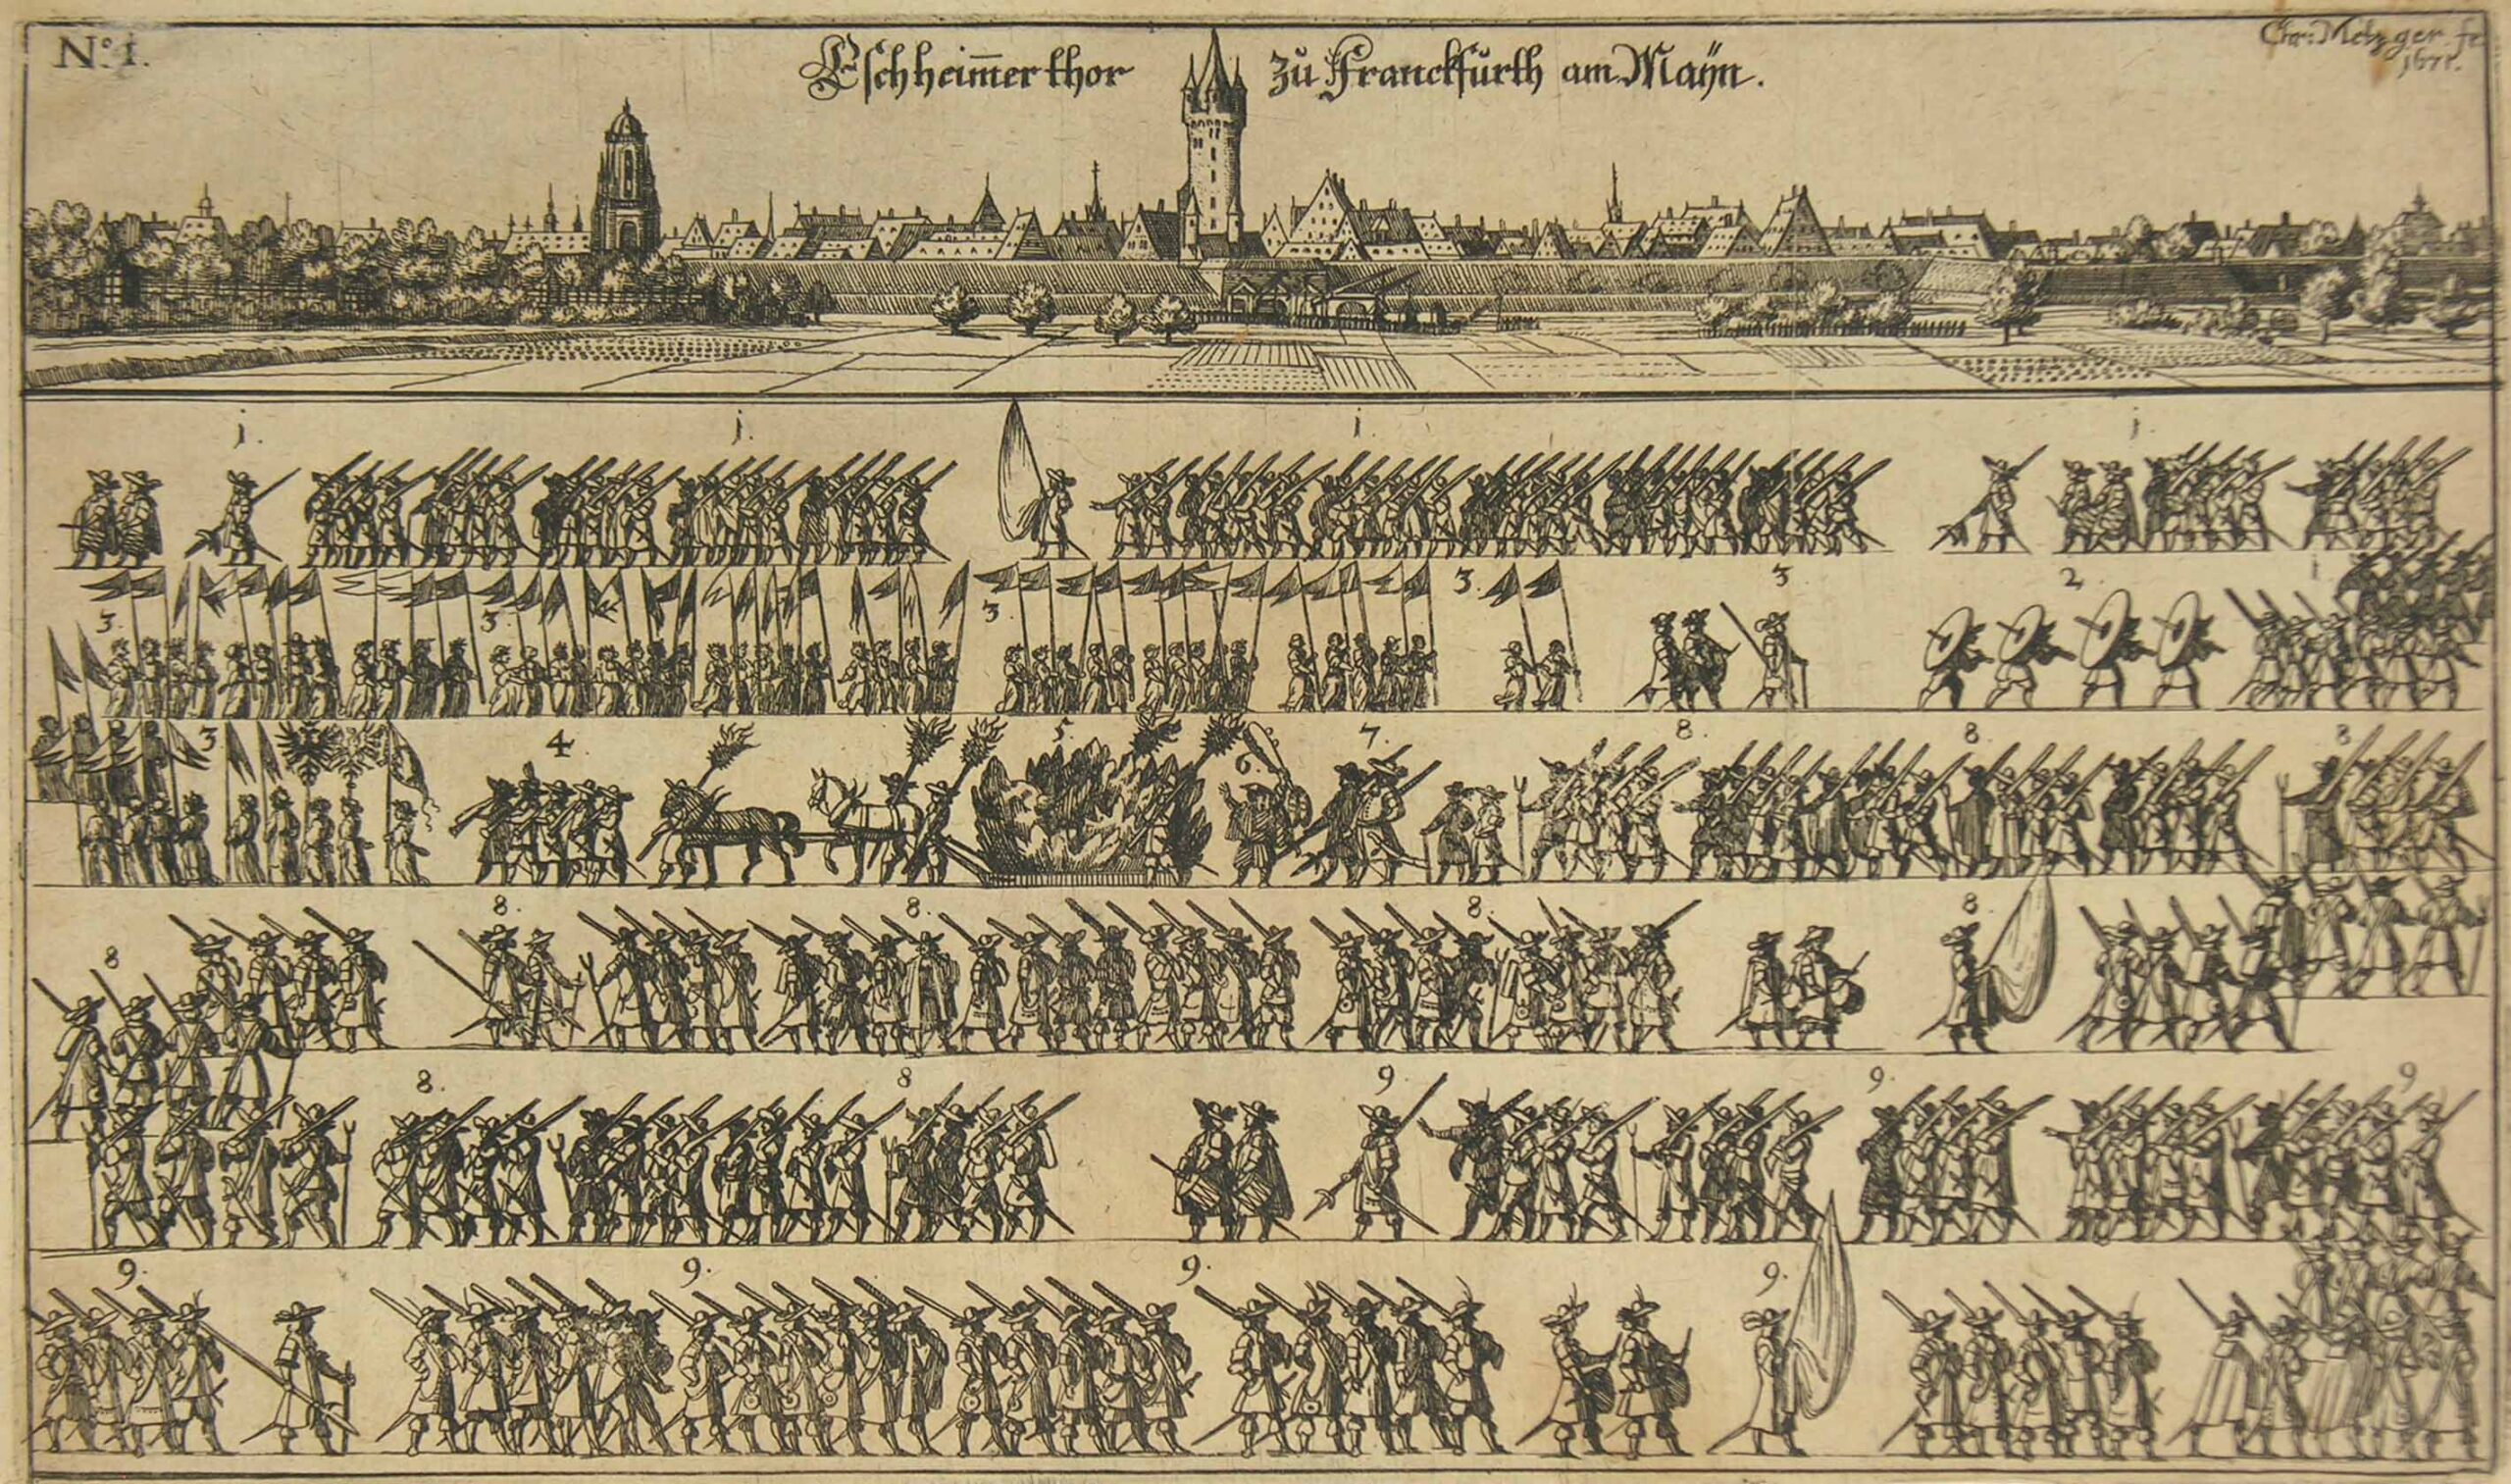 No. 1.
Eschheim̄er thor zu Franckfurth am Maÿn.
Chr: Metzger. fe.
j. j. j. j.
3. 3. 3 3. 3. 2. 1
3. 4. 5. 6. 7. 8. 8. 8
8 8. 8. 8. 8.
8. 8 9. 9. 9
9. 9. 9. 9.